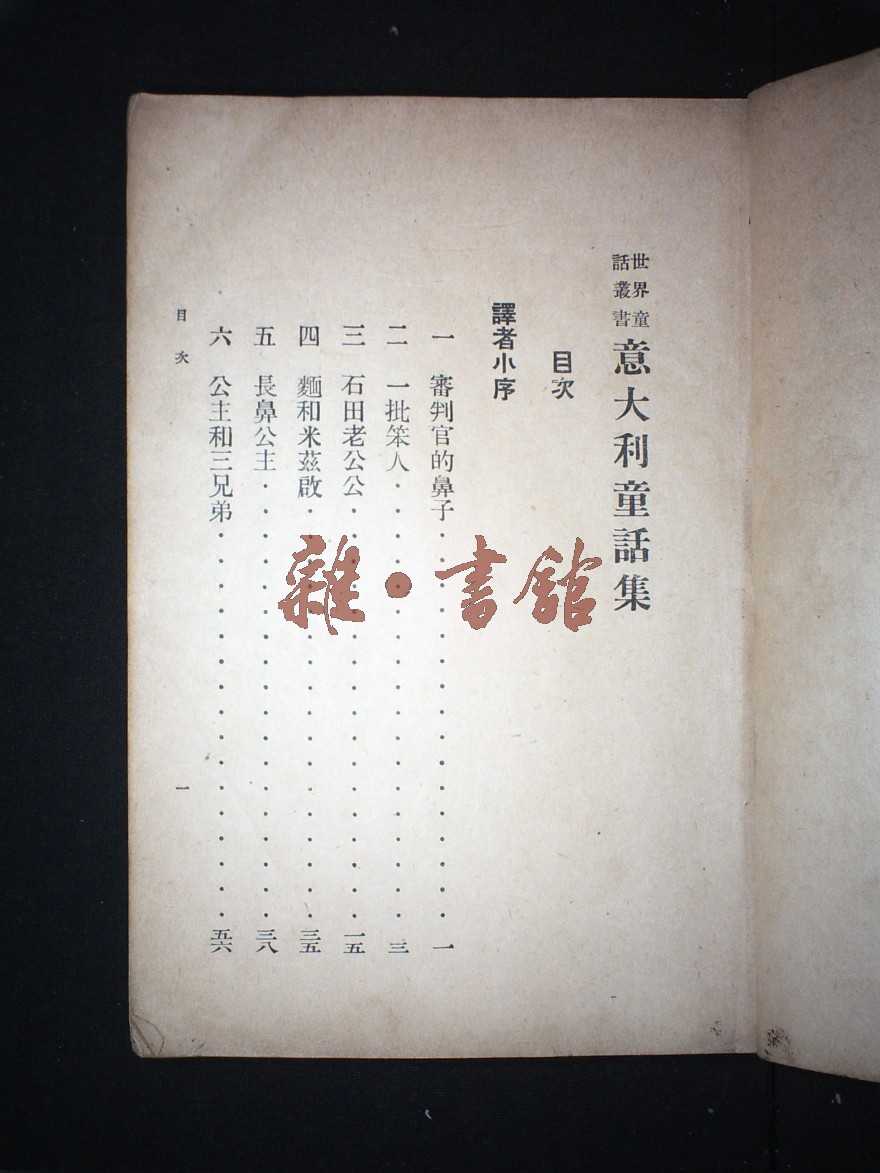 世界童話叢書 意大利童話集
目次
譯者小序
一 審判官的鼻子 一
二 一批笨人 三
三 石田老公公 一五
四 麵和米茲啟 三五
五 長鼻公主 三八
六 公主和三兄弟 五六
目次 一
雜·書館